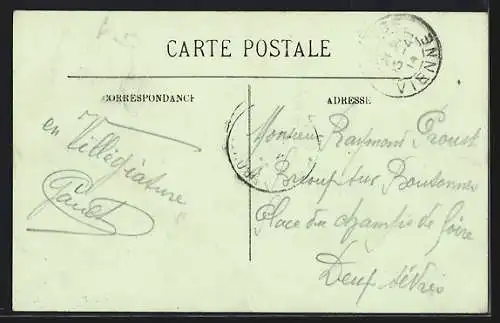 CARTE POSTALE
CORRESPONDANCE
ADRESSE
en Villégiature
Monsieur Raymond Proust
Place du champ de foire
Deux Sèvres
VIENNE